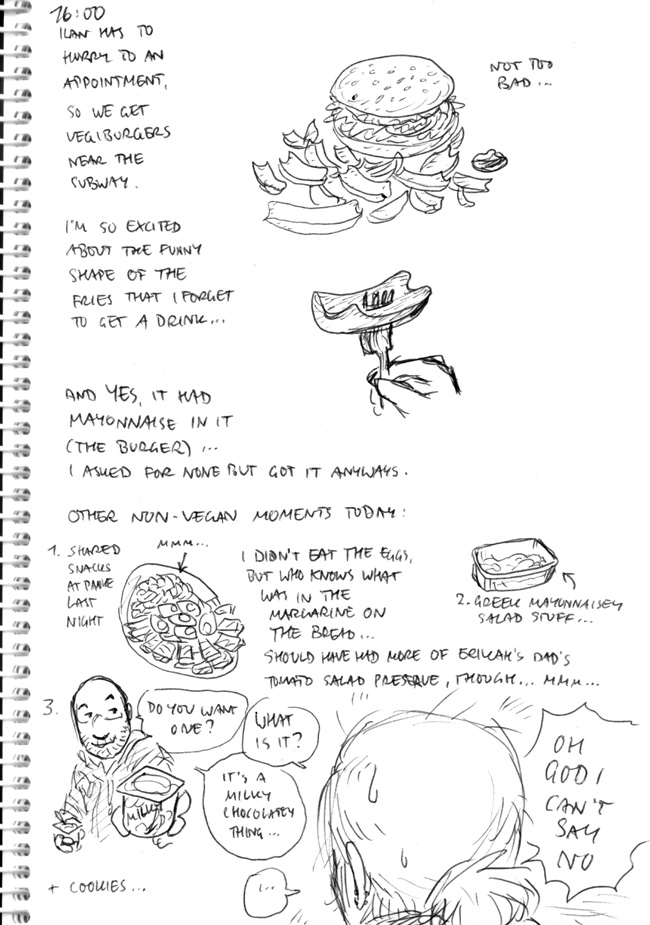 16:00
ILAN HAS TO
HURRY TO AN
APPOINTMENT,
SO WE GET
VEGIBURGERS
NEAR THE
SUBWAY.
NOT TOO
BAD...
I'M SO EXCITED
ABOUT THE FUNNY
SHAPE OF THE
FRIES THAT I FORGET
TO GET A DRINK...
AND YES, IT HAD
MAYONNAISE IN IT
(THE BURGER)...
I ASKED FOR NONE BUT GOT IT ANYWAYS.
OTHER NON-VEGAN MOMENTS TODAY:
1. SHARED
SNACKS
AT
LAST
NIGHT
MMM...
I DIDN'T EAT THE EGGS,
BUT WHO KNOWS WHAT
WAS IN THE
MARGARINE ON
THE BREAD...
SHOULD HAVE HAD MORE OF DAD'S
TOMATO SALAD PRESERVE, THOUGH... MMM...
2. GREEK MAYONNAISEY
SALAD STUFF...
3.
DO YOU WANT
ONE?
WHAT
IS IT?
IT'S A
MILKY
CHOCOLATEY
THING...
OH
GOD I
CAN'T
SAY
NO
+ COOKIES...